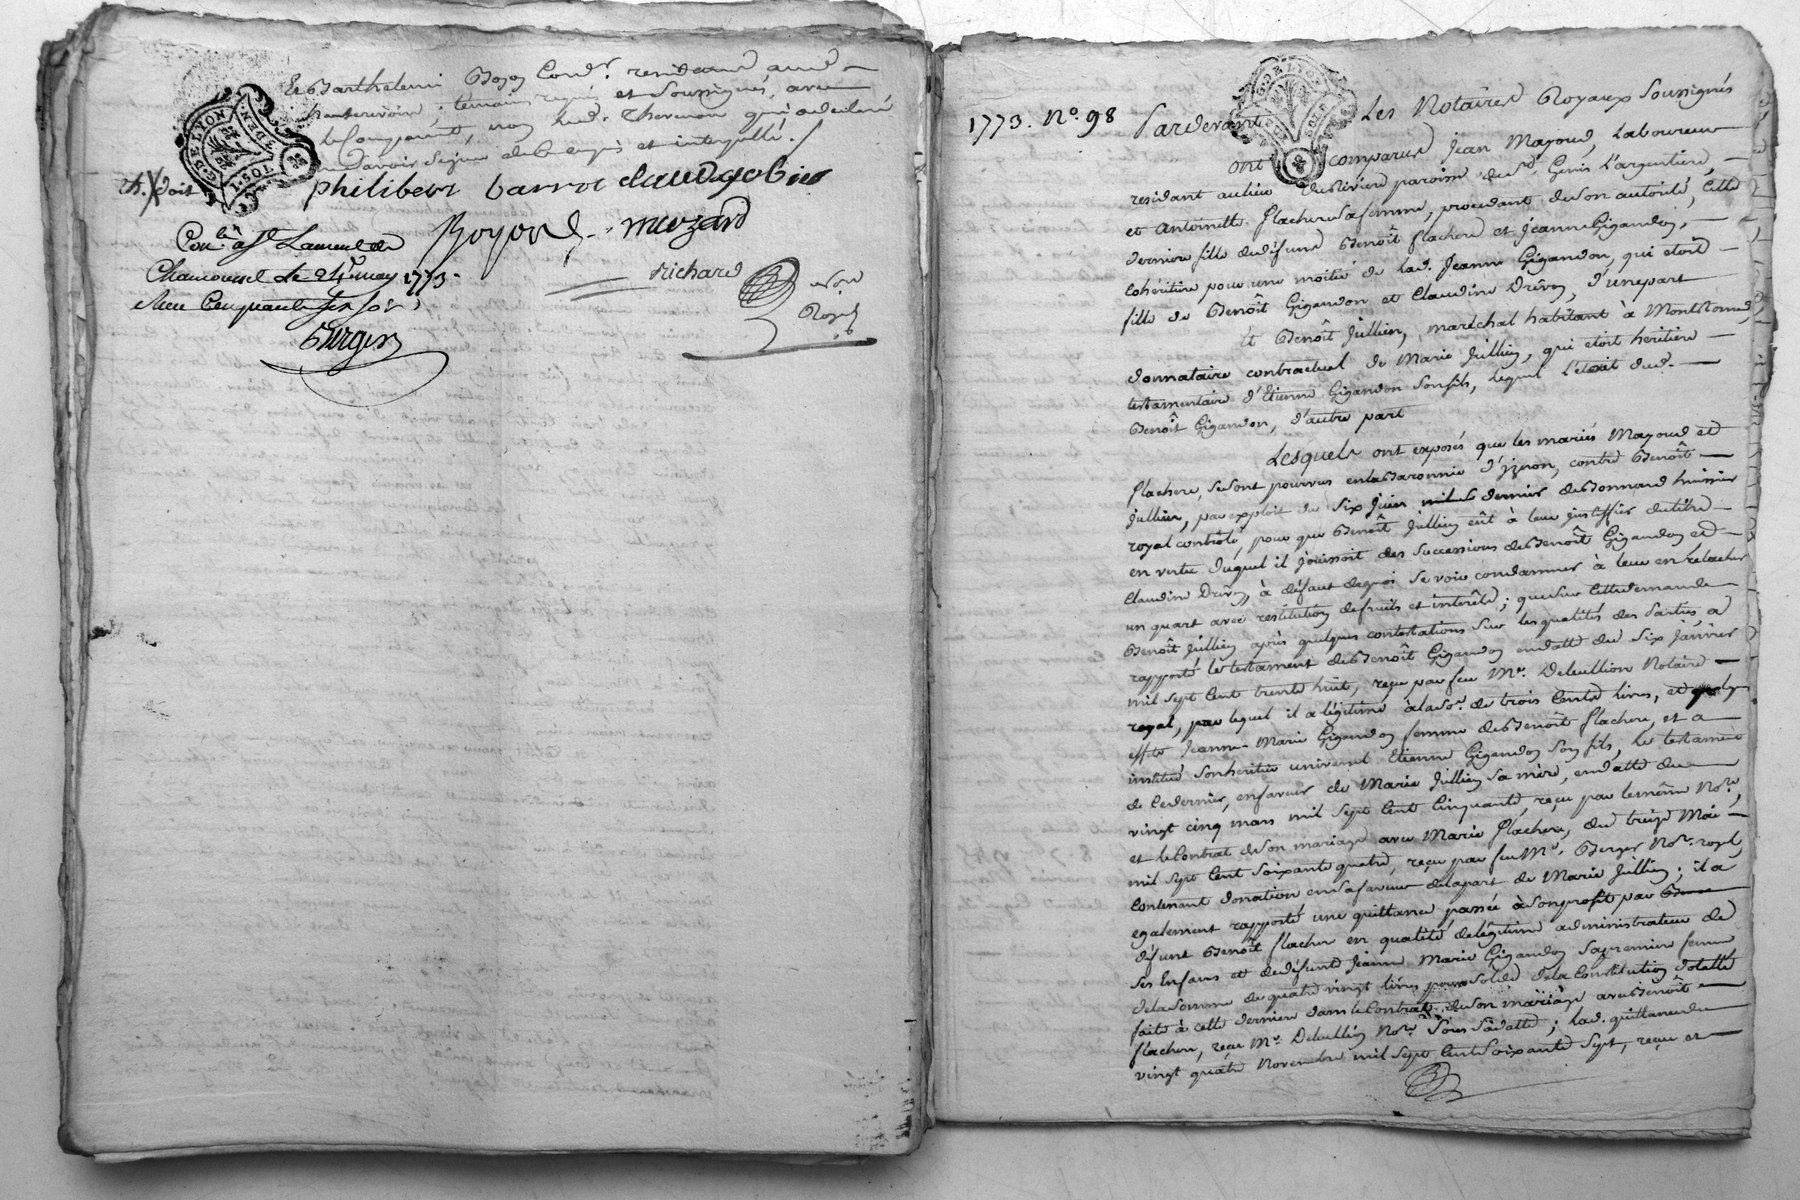 Et Barthelemi Boyon Cord.r residant aud.
hauterivoire, temoins requis et soussignés, avec
le Comparant, non lad. Thevenon qui a declaré
ne savoir signer de ce enquis et interpellé./
philibert barrot claud gobier
Boyond muzard
Richard
Con.lé à S.t Laurent de
Chamousset le 24 may 1773
Reçu Cinquante six sols
Berger
G. DE LYON
1773. N.o 98 Pardevant Les Notaires Royaux soussignés
ont comparus Jean Mayoud, Laboureur
residant au lieu du Rivier paroisse de S.t Genis L'argentiere,
et Antoinette flachere sa femme, procedant de son autorité, Cette
derniere fille de défunt Benoît flachere et Jeanne Gigandon,
Cohéritiere pour une moitié de lad. Jeanne Gigandon, qui etoit
fille de Benoît Gigandon et Claudine Drivon, d'une part
Et Benoît Jullien, maréchal habitant à Montromand,
donnataire contractuel de Marie Jullien, qui etoit heritiere
testamentaire d'Etienne Gigandon son fils, lequel l'étoit dud.
Benoît Gigandon, d'autre part
Lesquels ont exposés que les mariés Mayoud et
flachere, se sont pourvus en la Baronnie d'yzeron, contre Benoît
Jullien, par exploit du six Juin dernier de Bonnand huissier
royal contrôlé, pour que Benoît Jullien eût à leur justiffier du titre
en vertu duquel il jouissoit des successions de Benoît Gigandon et
Claudine Drivon, à défaut de quoi se voir condamner à leur en relacher
un quart avec restitution de fruits et interêts; que sur cette demande
Benoît Jullien après quelques contestations sur les qualités des Parties a
rapporté le testament de Benoît Gigandon en datte du six Janvier
mil sept Cent trente huit, reçu par feu M.e Deleullion Notaire
royal, par lequel il a légitimé à la so.e de trois Cents livres, et quelques
eff.ts Jeanne-Marie Gigandon femme de Benoît flachere, et a
institué son heritier universel Etienne Gigandon son fils, le testament
de ce dernier, en faveur de Marie Jullien sa mère, en datte du
vingt cinq mars mil sept Cent Cinquante, reçu par le même No.re,
et le Contrat de son mariage avec Marie flachere, du treize Mai
mil sept Cent soixante quatre, reçu par feu M.e Berger No.re royal,
Contenant donation en sa faveur de la part de Marie Jullien; il a
egalement rapporté une quittance passée à son profit par
défunt Benoît flachere en qualité de légitime administrateur de
ses Enfans et de défunte Jeanne Marie Gigandon sa premiere femme
de la somme de quatre vingt livres pour solde de la Constitution dotalle
faite à cette derniere dans le Contrat de son mariage avec Benoît
flachere, reçu M.e Deleullion No.re sous sa datte; lad. quittance du
vingt quatre Novembre mil sept Cent soixante sept, reçue et